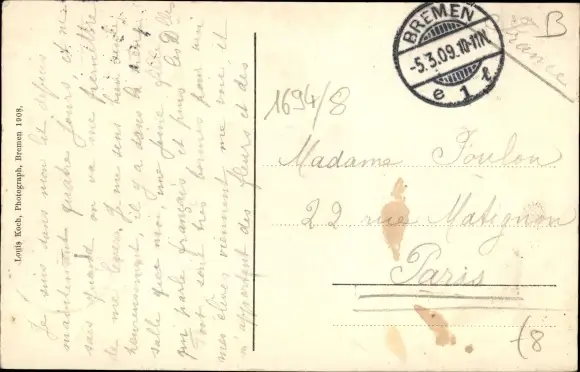 Louis Koch, Photograph, Bremen 1908.
Je suis dans mon lit depuis
maintenant quatre jours et ne
sais quand on va me permettre
de me lever. Je me sens bien seule
heureusement, il y a dans la
salle que moi, une jeune fille
qui parle français et puis les
sont très bonnes pour moi
mes élèves viennent me voir et
m'apportent des fleurs et des
BREMEN
-5.3.09.10-11N.
e 1 l
B
France
1694/8
Madame Toulon
22 rue Matignon
Paris
(8